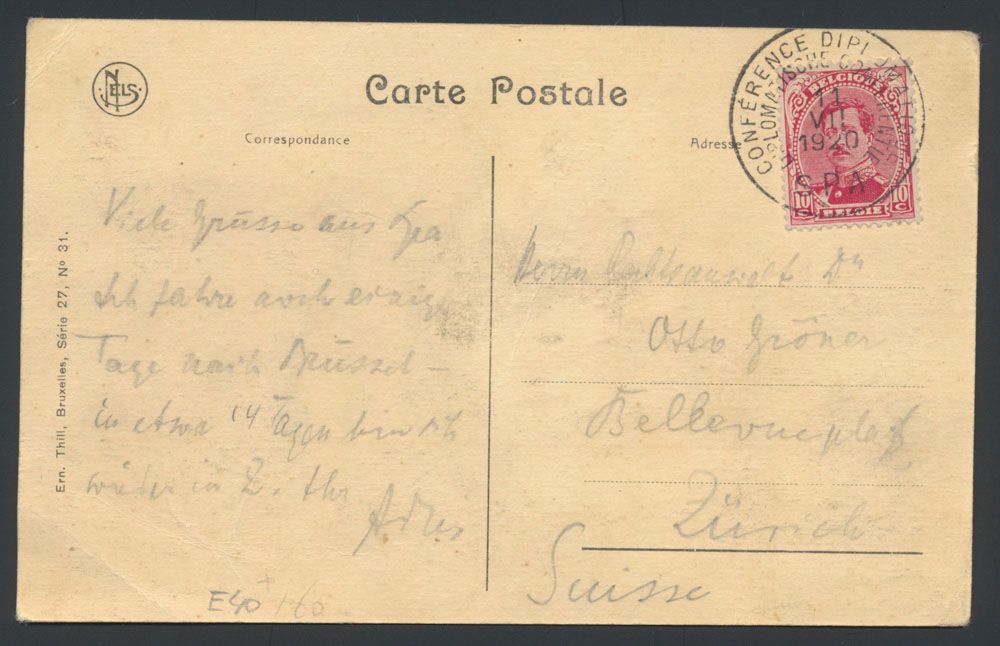 NELS
Carte Postale
Correspondance
Adresse
CONFÉRENCE DIPLOMATIQUE
DIPLOMATISCHE CONFERENTIE
11
VII
1920
SPA
BELGIQUE
10 C 10 C
BELGIË
Ern. Thill, Bruxelles, Série 27, No 31.
Viele Grüsse aus Spa
Ich fahre noch einige
Tage nach Brüssel –
in etwa 14 Tagen bin ich
wieder in Z. Ihr
Herrn Rechtsanwalt Dr
Otto Gröner
Bellevueplatz
Zürich
Suisse
E40 160